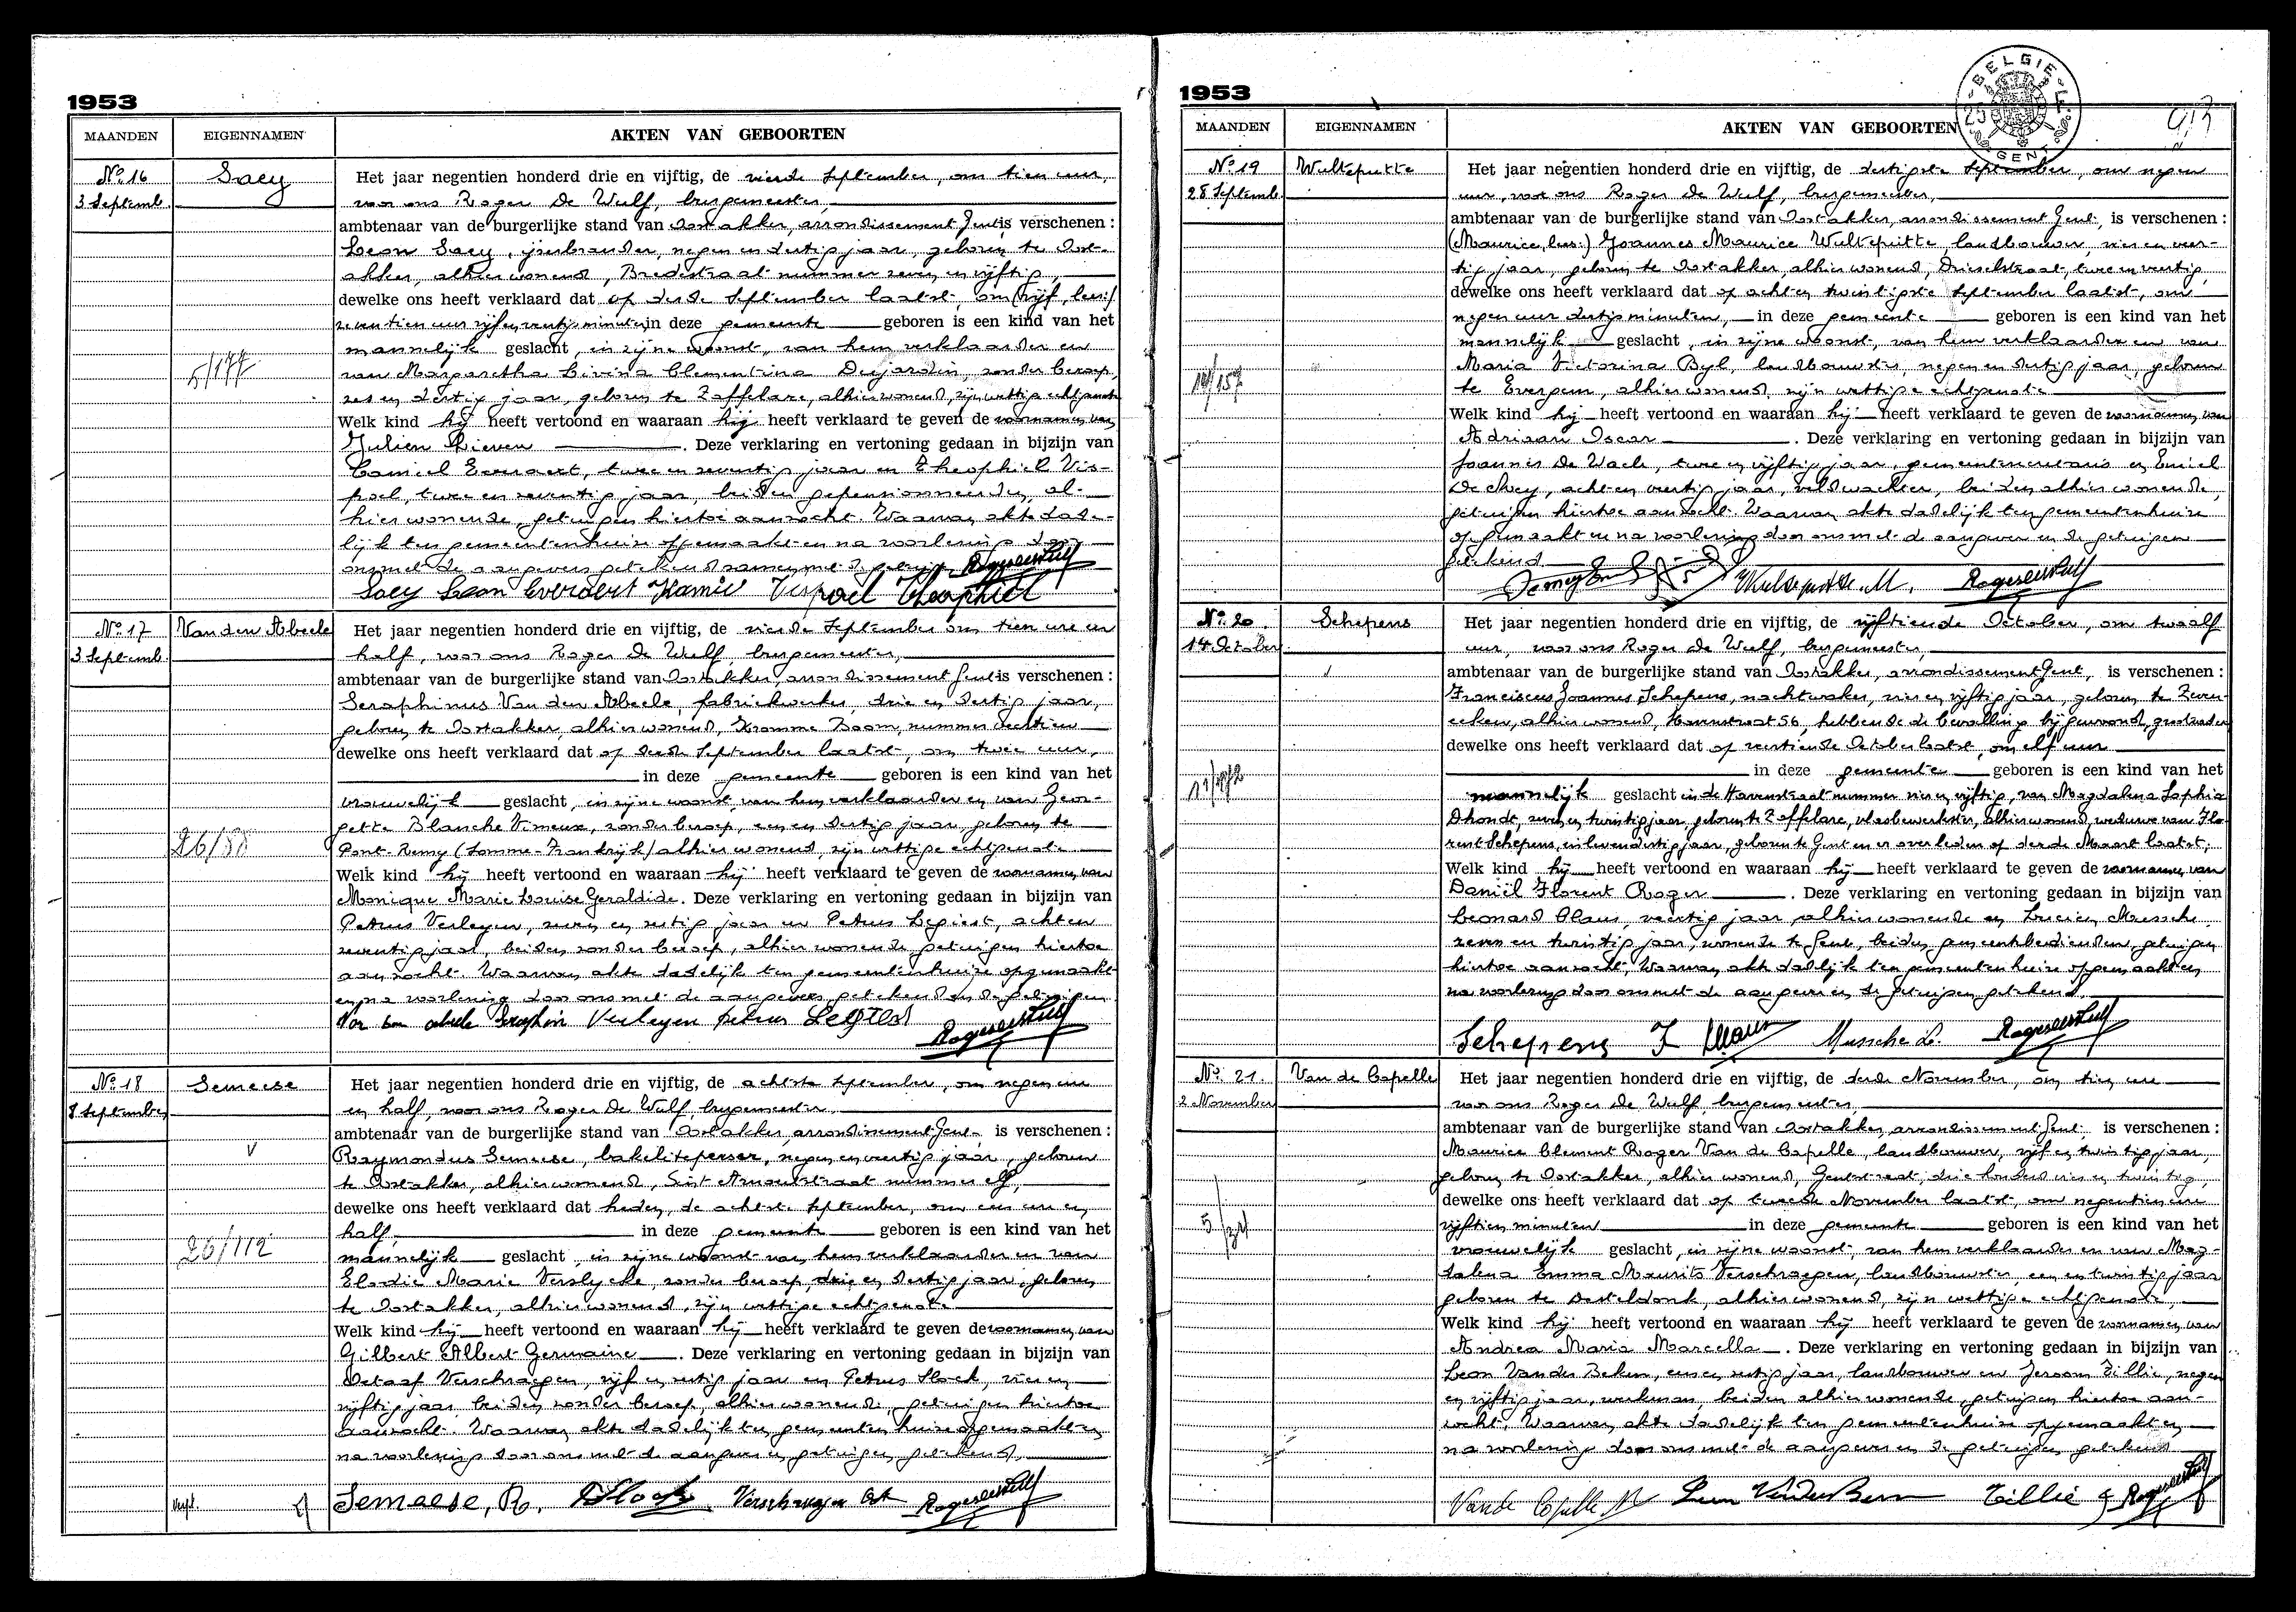 1953
MAANDEN EIGENNAMEN AKTEN VAN GEBOORTEN
No. 16 Saey Het jaar negentien honderd drie en vijftig, de vierde September, om tien uur,
3 Septemb. voor ons Roger De Wulf, burgemeester,
ambtenaar van de burgerlijke stand van Oostakker, arrondissement Gent is verschenen :
Leon Saey, negen en dertig jaar, geboren te Oost-
akker, alhier wonend, Bredestraat nummer zeven en vijftig,
dewelke ons heeft verklaard dat op derde September laatst, om (vijf, lees:)
zeventien uur vijf en veertig minuten, in deze gemeente geboren is een kind van het
mannelijk geslacht, in zijne woonst, van hem verklaarder en
van Margaretha Livina Clementina Dujardin, zonder beroep,
zes en dertig jaar, geboren te Zaffelare, alhier wonend, zijn wettige echtgenote
5/177
Welk kind hij heeft vertoond en waaraan hij heeft verklaard te geven de voornamen van
Julien Lieven . Deze verklaring en vertoning gedaan in bijzijn van
Camiel Everaert, twee en zeventig jaar en Theophiel Vis-
poel, twee en zeventig jaar, beiden gepensionneerden, al-
hier wonende, getuigen hiertoe aanzocht. Waarvan akte dade-
lijk ten gemeentenhuize opgemaakt en na voorlezing door
ons met de aangever getekend samen met de getuigen. Roger De Wulf
Saey Leon Everaert Kamiel Vispoel Theophiel
No. 17 Van den Abeele Het jaar negentien honderd drie en vijftig, de vierde September om tien ure en
3 Septemb. half, voor ons Roger De Wulf, burgemeester,
ambtenaar van de burgerlijke stand van Oostakker, arrondissement Gent is verschenen :
Seraphinus Van den Abeele, fabriekwerker, drie en dertig jaar,
geboren te Oostakker, alhier wonend, Kromme Boom, nummer zestien
dewelke ons heeft verklaard dat op derde September laatst, om twee uur,
in deze gemeente geboren is een kind van het
vrouwelijk geslacht, in zijne woonst, van hem verklaarder en van Geor-
gette Blanche Vimeux, zonder beroep, een en dertig jaar, geboren te
Pont-Remy (Somme-Frankrijk) alhier wonend, zijn wettige echtgenote
26/88
Welk kind hij heeft vertoond en waaraan hij heeft verklaard te geven de voornamen van
Monique Marie Louise Geraldide. Deze verklaring en vertoning gedaan in bijzijn van
Petrus Verleyen, zeven en zestig jaar en Petrus Legiest, acht en
zeventig jaar, beiden zonder beroep, alhier wonende getuigen hiertoe
aanzocht. Waarvan akte dadelijk ten gemeentenhuize opgemaakt
en na voorlezing door ons met de aangever getekend en de getuigen
Van den abeele Seraphin Verleyen petrus Legiest Roger De Wulf
No. 18 Semeese Het jaar negentien honderd drie en vijftig, de achtste September, om negen ure
8 September en half, voor ons Roger De Wulf, burgemeester
ambtenaar van de burgerlijke stand van Oostakker, arrondissement Gent, is verschenen :
Raymondus Semeese, bakelitepersser, negen en veertig jaar, geboren
te Oostakker, alhier wonend, Sint Amandstraat nummer elf,
dewelke ons heeft verklaard dat heden, de achtste September, om een ure en
half, in deze gemeente geboren is een kind van het
26/112 mannelijk geslacht, in zijne woonst van hem verklaarder en van
Elodie Marie Verslycke, zonder beroep, drie en dertig jaar, geboren
te Oostakker, alhier wonend, zijn wettige echtgenote
Welk kind hij heeft vertoond en waaraan hij heeft verklaard te geven de voornamen van
Gilbert Albert Germaine . Deze verklaring en vertoning gedaan in bijzijn van
Octaaf Verschraegen, vijf en zestig jaar en Petrus Slock, vier en
vijftig jaar, beiden zonder beroep, alhier wonende, getuigen hiertoe
aanzocht. Waarvan akte dadelijk ten gemeentenhuize opgemaakt en
na voorlezing door ons met de aangever en getuigen getekend.
Semeese, R. Slock Verschraegen Oct Roger De Wulf
1953
BELGIE
GENT
MAANDEN EIGENNAMEN AKTEN VAN GEBOORTEN
No. 19 Wulteputte Het jaar negentien honderd drie en vijftig, de dertigste September, om negen
28 Septemb. uur, voor ons Roger De Wulf, burgemeester,
ambtenaar van de burgerlijke stand van Oostakker, arrondissement Gent, is verschenen :
(Maurice, lees:) Joannes Maurice Wulteputte, landbouwer, vier en veer-
tig jaar, geboren te Oostakker, alhier wonend, Drieselstraat, twee en veertig,
dewelke ons heeft verklaard dat op acht en twintigste September laatst, om
negen uur dertig minuten, in deze gemeente geboren is een kind van het
mannelijk geslacht, in zijne woonst, van hem verklaarder en van
Maria Victorina Byl, landbouwster, negen en dertig jaar, geboren
te Evergem, alhier wonend, zijn wettige echtgenote
Welk kind hij heeft vertoond en waaraan hij heeft verklaard te geven de voornamen van
Adriaan Oscar . Deze verklaring en vertoning gedaan in bijzijn van
Joannes De Waele, twee en vijftig jaar, gemeentesecretaris en Emiel
De Mey, acht en veertig jaar, veldwachter, beiden alhier wonende,
getuigen hiertoe aanzocht. Waarvan akte dadelijk ten gemeentenhuize
opgemaakt en na voorlezing door ons met de aangever en de getuigen
getekend
Wulteputte M. Roger De Wulf
No. 20 Schepens Het jaar negentien honderd drie en vijftig, de vijftiende October, om twaalf
14 October uur, voor ons Roger De Wulf, burgemeester,
ambtenaar van de burgerlijke stand van Oostakker, arrondissement Gent, is verschenen :
Franciscus Joannes Schepens, nachtwaker, vier en vijftig jaar, geboren te Zeven-
eeken, alhier wonend, Havenstraat 56, hebbende de bevalling bijgewoond,
dewelke ons heeft verklaard dat op veertiende October laatst, om elf uur
in deze gemeente geboren is een kind van het
mannelijk geslacht in de Havenstraat nummer vier en vijftig, van Magdalena Sophia
Dhondt, zeven en twintig jaar, geboren te Zaffelare, vlasbewerkster, alhier wonend, weduwe van Flo-
rent Schepens, in leven dertig jaar, geboren te Gent en er overleden op derde Maart laatst;
Welk kind hij heeft vertoond en waaraan hij heeft verklaard te geven de voornamen van
Daniël Florent Roger . Deze verklaring en vertoning gedaan in bijzijn van
Leonard Claus, veertig jaar alhier wonende en Lucien Mussche
zeven en twintig jaar, wonende te Gent, beiden gemeentebedienden, getuigen
hiertoe aanzocht, Waarvan akte dadelijk ten gemeentenhuize opgemaakt en
na voorlezing door ons met de aangever en de getuigen getekend.
Schepens F Claus Mussche L. Roger De Wulf
No. 21. Van de Capelle Het jaar negentien honderd drie en vijftig, de derde November, om tien ure
2 November voor ons Roger De Wulf, burgemeester
ambtenaar van de burgerlijke stand van Oostakker, arrondissement Gent, is verschenen :
Maurice Clement Roger Van de Capelle, landbouwer, vijf en twintig jaar,
geboren te Oostakker, alhier wonend, Gentstraat, drie honderd vier en twintig,
dewelke ons heeft verklaard dat op tweede November laatst, om negentien ure
vijftien minuten in deze gemeente geboren is een kind van het
vrouwelijk geslacht, in zijne woonst, van hem verklaarder en van Mag-
dalena Emma Maurits Verschraegen, landbouwster, een en twintig jaar
geboren te Desteldonk, alhier wonend, zijn wettige echtgenote,
Welk kind hij heeft vertoond en waaraan hij heeft verklaard te geven de voornamen van
Andrea Maria Marcella . Deze verklaring en vertoning gedaan in bijzijn van
Leon Van der Beken, een en zestig jaar, landbouwer en Jeroom Tillie, negen
en vijftig jaar, werkman, beiden alhier wonende, getuigen hiertoe aan-
zocht. Waarvan akte dadelijk ten gemeentenhuize opgemaakt en
na voorlezing door ons met de aangever en de getuigen getekend
Van de Capelle M Tillie J Roger De Wulf